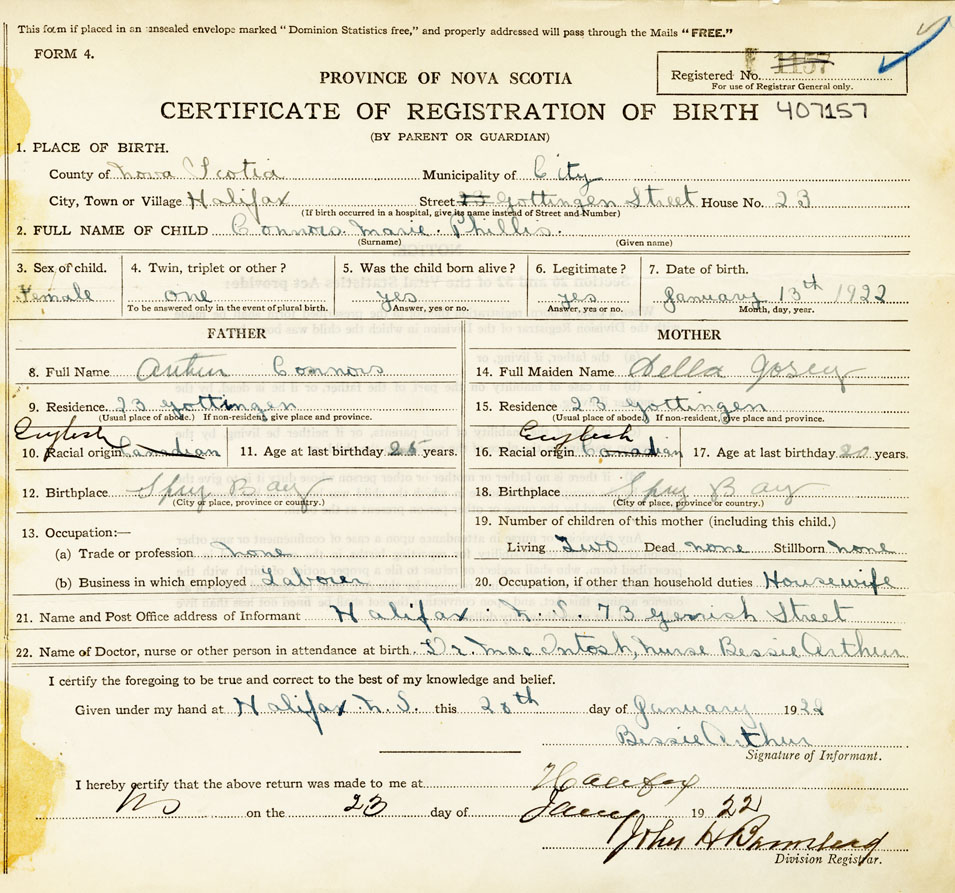 This form if placed in an unsealed envelope marked "Dominion Statistics free," and properly addressed will pass through the Mails "FREE."
FORM 4.
PROVINCE OF NOVA SCOTIA
Registered No. 1157
For use of Registrar General only.
CERTIFICATE OF REGISTRATION OF BIRTH 407157
(BY PARENT OR GUARDIAN)
1. PLACE OF BIRTH.
County of Nova Scotia Municipality of City
City, Town or Village Halifax Street 23 Gottingen Street House No. 23
(If birth occurred in a hospital, give its name instead of Street and Number)
2. FULL NAME OF CHILD Connors. Marie. Phillis.
(Surname) (Given name)
3. Sex of child. 4. Twin, triplet or other? 5. Was the child born alive? 6. Legitimate? 7. Date of birth.
Female one yes yes January 13th 1922
To be answered only in the event of plural birth. Answer, yes or no. Answer, yes or no. Month, day, year.
FATHER MOTHER
8. Full Name Arthur Connors 14. Full Maiden Name Della Josey
9. Residence. 23 Gottingen 15. Residence 23 Gottingen
(Usual place of abode.) If non-resident, give place and province. (Usual place of abode.) If non-resident, give place and province.
English English
10. Racial origin Canadian 11. Age at last birthday 25 years. 16. Racial origin Canadian 17. Age at last birthday 20 years.
12. Birthplace Spry Bay 18. Birthplace Spry Bay
(City or place, province or country.) (City or place, province or country.)
13. Occupation:— 19. Number of children of this mother (including this child.)
(a) Trade or profession None Living Two Dead none Stillborn none
(b) Business in which employed Laborer 20. Occupation, if other than household duties Housewife
21. Name and Post Office address of Informant Halifax. N. S. 73 Street
22. Name of Doctor, nurse or other person in attendance at birth. Dr. Mac Intosh, Nurse Bessie Arthur
I certify the foregoing to be true and correct to the best of my knowledge and belief.
Given under my hand at Halifax. N. S. this 20th day of January 1922
Bessie Arthur
Signature of Informant.
I hereby certify that the above return was made to me at Halifax
NS on the 23 day of Jany 1922
John H
Division Registrar.